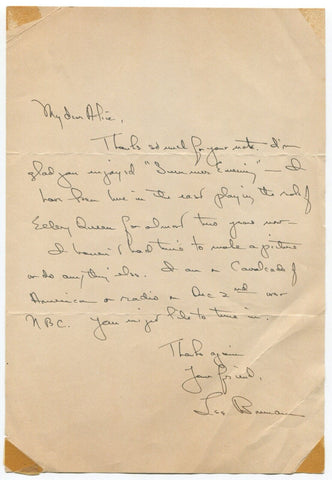 My dear Alice,
Thanks so much for your note. I'm
glad you enjoyed "Summer Evening" — I
have been here in the east playing the role of
Ellery Queen for almost two years now —
I haven't had time to make a picture
or do anything else. I am on Cavalcade of
America on radio on Dec 2nd over
NBC. You might like to tune in.
Thanks again
Your friend,
Lee Bowman